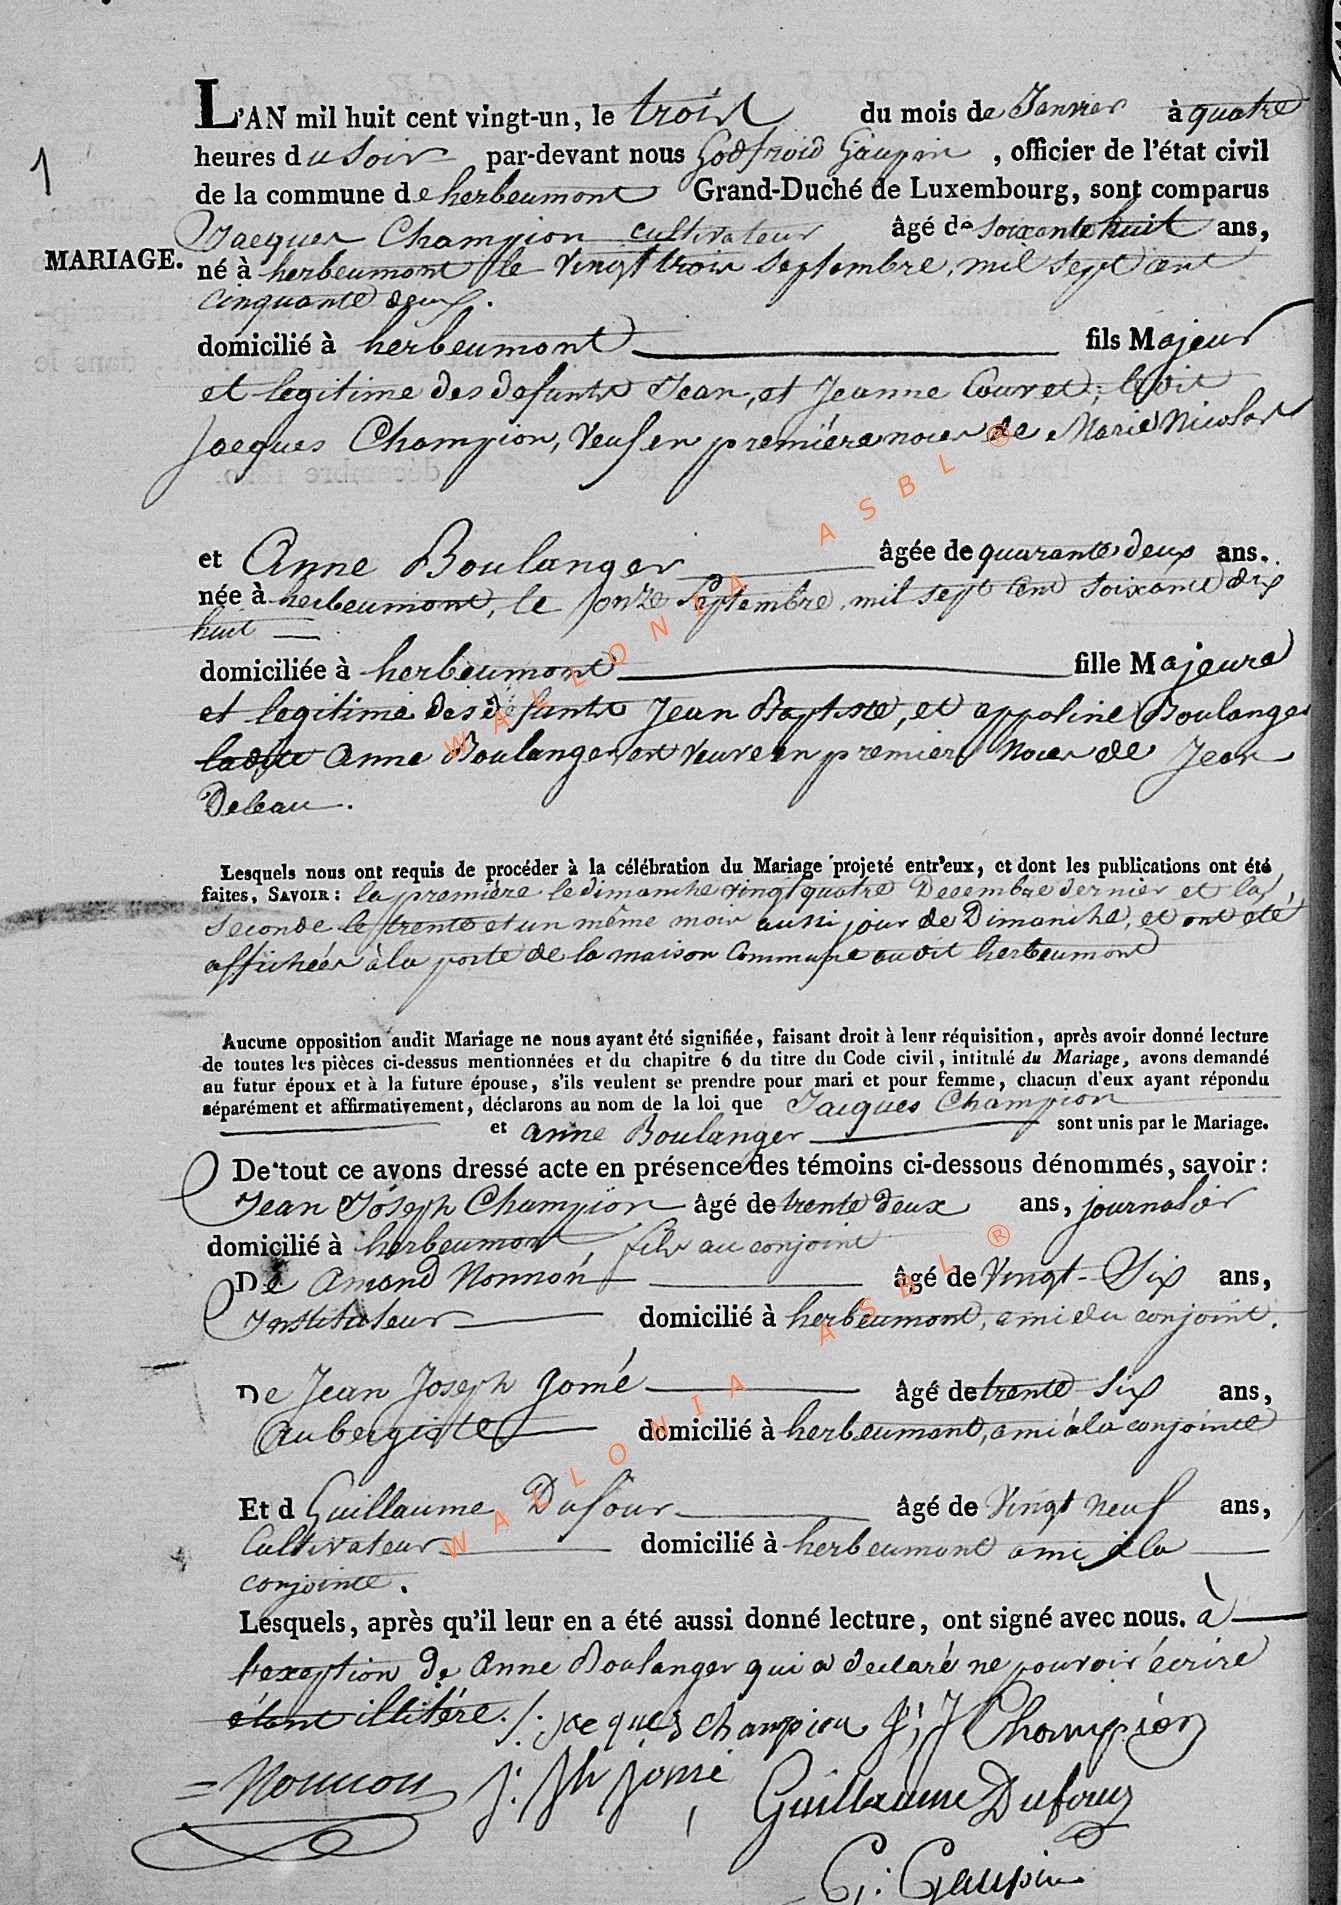 L'AN mil huit cent vingt-un, le trois du mois de Janvier à quatre
heures du soir par-devant nous Godfroid Gaupin, officier de l'état civil
de la commune de herbeumont Grand-Duché de Luxembourg, sont comparus
Jacques Champion cultivateur âgé de soixante huit ans,
1
MARIAGE.
né à herbeumont le vingt trois septembre, mil sept cent
cinquante deux.
domicilié à herbeumont fils Majeur
et legitime des defunts Jean, et Jeanne Couvet; ledit
Jacques Champion, veuf en première noces de Marie Nicolas
et Anne Boulanger âgée de quarante deux ans.
née à herbeumont, le onze septembre, mil sept cent soixante dix
huit
domiciliée à herbeumont fille Majeure
et legitime des défunts Jean Baptiste, et appoline Boulanger
ladite Anne Boulanger est veuve en premiers noces de Jean
Deleau.
Lesquels nous ont requis de procéder à la célébration du Mariage projeté entr'eux, et dont les publications ont été
faites, SAVOIR: la première le dimanche vingt quatre Decembre dernier et la
seconde le trente et un même mois aussi jour de Dimanche, et ont été
affichées à la porte de la maison Commune audit herbeumont
Aucune opposition audit Mariage ne nous ayant été signifiée, faisant droit à leur réquisition, après avoir donné lecture
de toutes les pièces ci-dessus mentionnées et du chapitre 6 du titre du Code civil, intitulé du Mariage, avons demandé
au futur époux et à la future épouse, s'ils veulent se prendre pour mari et pour femme, chacun d'eux ayant répondu
séparément et affirmativement, déclarons au nom de la loi que Jacques Champion
et anne Boulanger sont unis par le Mariage.
De tout ce avons dressé acte en présence des témoins ci-dessous dénommés, savoir:
Jean Joseph Champion âgé de trente deux ans, journalier
domicilié à herbeumont, fils au conjoint
De Amand Nonnon âgé de Vingt-Six ans,
Instituteur domicilié à herbeumont, ami du conjoint.
De Jean Joseph Jomé âgé de trente six ans,
Aubergiste domicilié à herbeumont, ami à la conjointe
Et d Guillaume Dufour âgé de Vingt neuf ans,
Cultivateur domicilié à herbeumont ami à la
conjointe.
Lesquels, après qu'il leur en a été aussi donné lecture, ont signé avec nous. à
l'exception de Anne Boulanger qui a declaré ne pouvoir écrire
étant illitére. /. jacques champion J: J Champion
= Nonnon J: Jh Jomé Guillaume Dufour
G: Gaupin
WALLONIA ASBL ®
WALLONIA ASBL ®